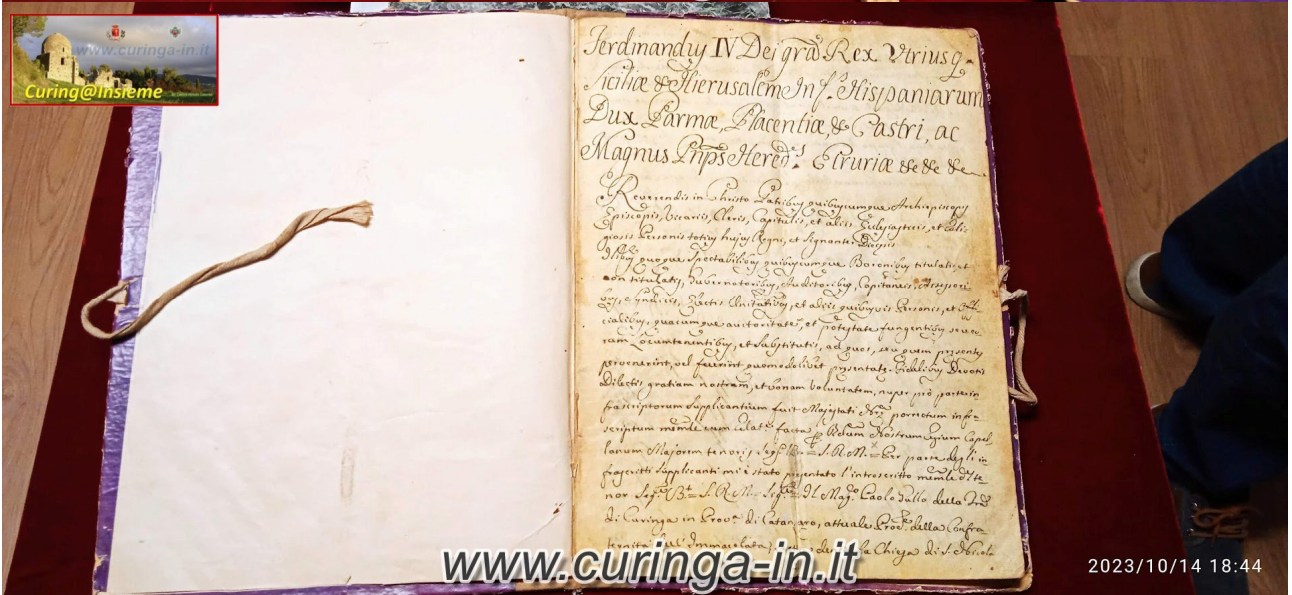 www.curinga-in.it
Curing@Insieme
Ferdinandus IV Dei grã Rex Utriusq.
Siciliæ & Hierusalem Inf.s Hispaniarum
Dux Parmæ, Placentiæ, & Castri, ac
Magnus Pnps Hered.s Etruriæ &c &c &c
Reverendis in Christo Patribus quibuscumque Archiepiscopis
Episcopis, Vicariis, Cleris, Capitulis, et aliis Eclesiasticis, et Reli-
giosis Personis totius hujus Regni, et signanter
Illibus quoque Spectabilibus quibuscumque Baronibus titulatis et
non titulatis, Gubernatoribus, Auditoribus, Capitaneis, Assessori-
bus, Syndicis, Electis Universitatibus, et aliis quibusvis Personis, et Offi-
cialibus, quacumque auctoritate, et potestate fungentibus seu eo-
rum Locumtenentibus, et Substitutis, ad quos, seu quem presentes
pervenerint, vel fuerint quomodolibet presentate, Fidelibus Devotis
Dilectis gratiam nostram, et bonam voluntatem, nuper pro parte in-
frascriptorum supplicantium fuit Majestati Nrẽ porrectum infra-
scriptum cum facta Nostrum Capel-
lanum Majorem tenoris S.R.M. Per parte degli in-
frascritti supplicanti mi è stato presentato l'introscritto del te-
nor S.R.M. Il Mag.co Paolo della
di Curinga in Prov.a di Catanzaro, attuale Proc.re della Confra-
ternita dell'Immacolata Chiesa di S. Nicola
www.curinga-in.it
2023/10/14 18:44